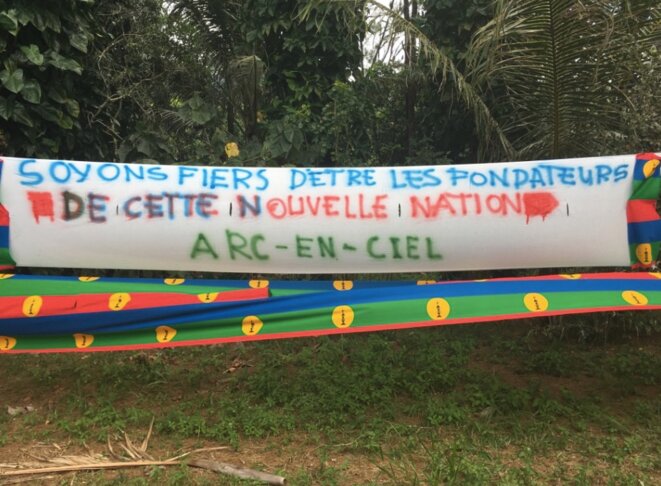 SOYONS FIERS D'ETRE LES FONDATEURS
DE CETTE NOUVELLE NATION
ARC-EN-CIEL